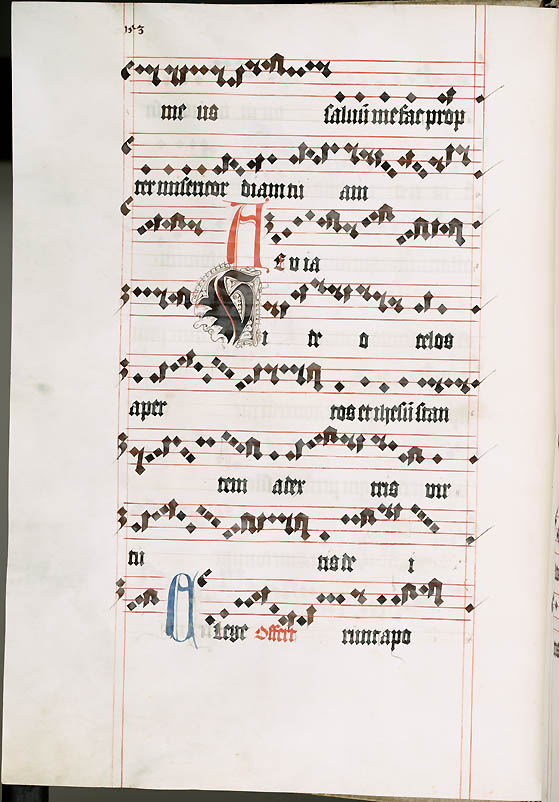 153
me us saluū me fac prop
ter misericor diam tu am
A Ł v ia
V i de o celos
aper tos et ihesū stan
tem a dex tris vir
tu tis de i
A Łeye Offert runt apo